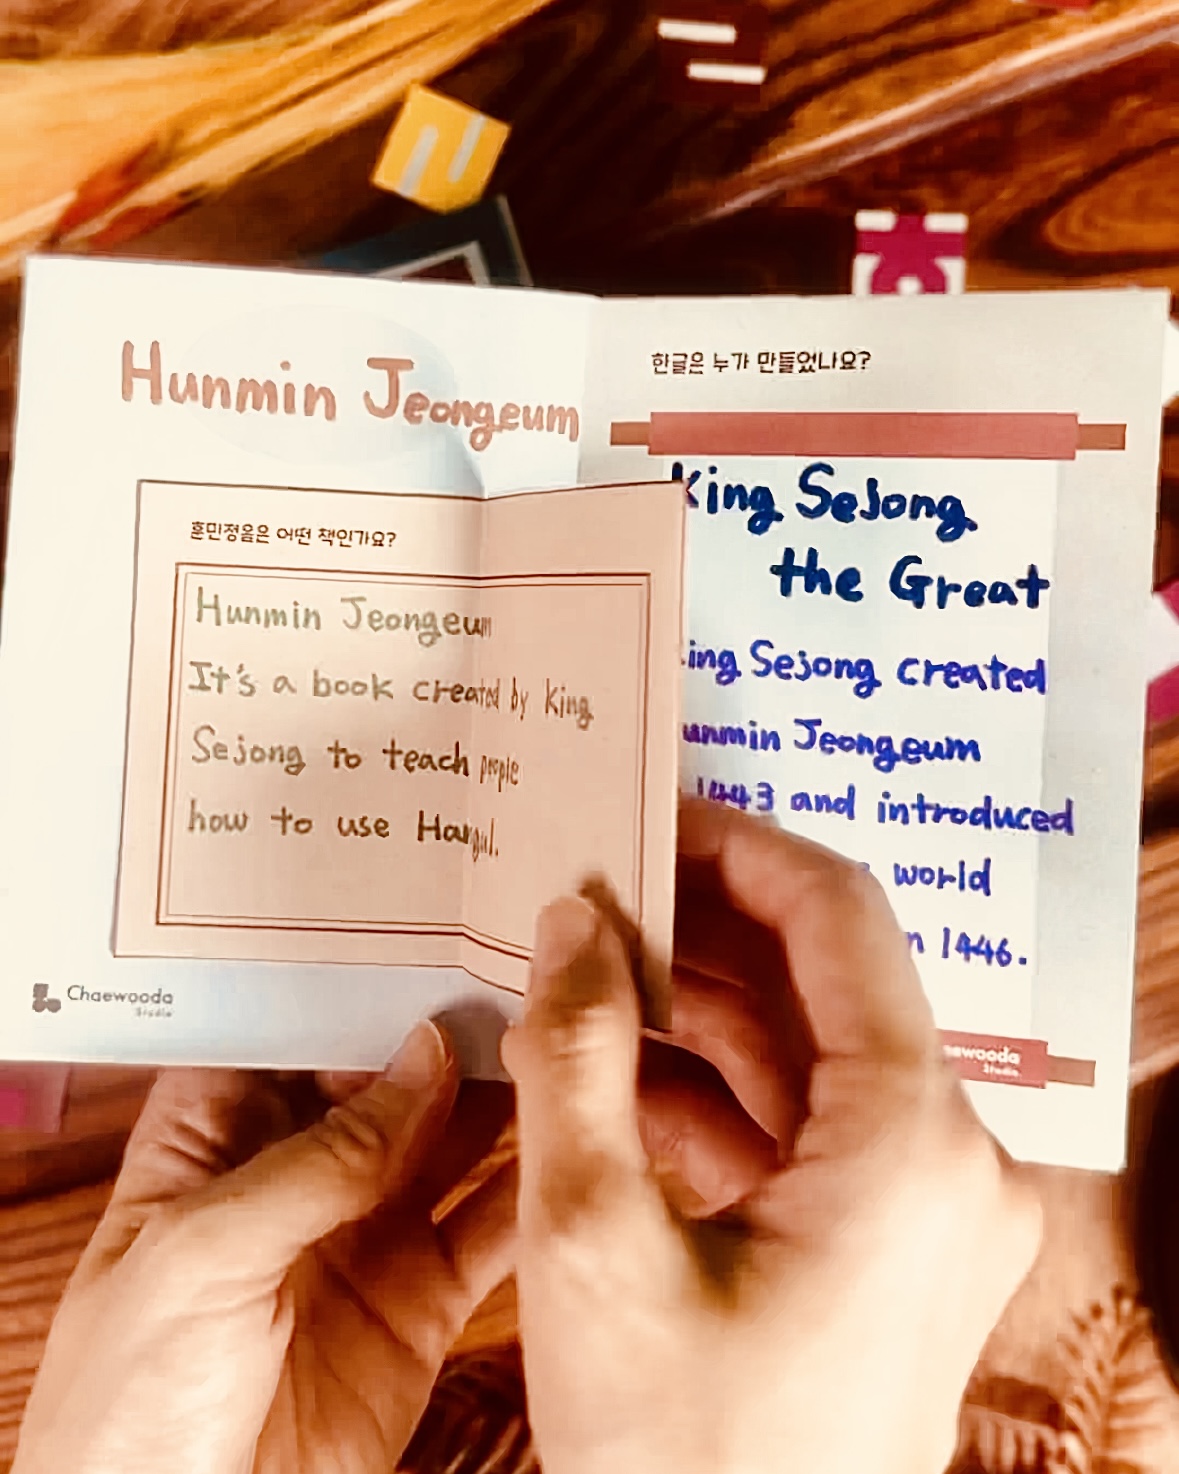 Hunmin Jeongeum
훈민정음은 어떤 책인가요?
Hunmin Jeongeum
It's a book created by King
Sejong to teach people
how to use Hangul.
Chaewooda
Studio
한글은 누가 만들었나요?
King Sejong
the Great
Sejong created
Jeongeum
1443 and introduced
world
1446.
Studio